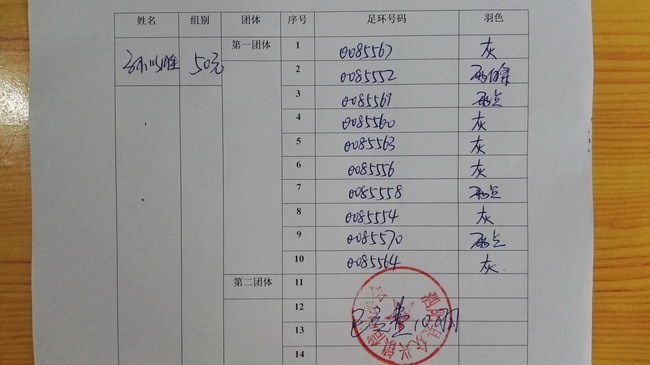 姓名 组别 团体 序号 足环号码 羽色
孙小胜 50元 第一团体 1 0085567 灰
2 0085552
3 0085569 雨点
4 0085560 灰
5 0085563 灰
6 0085556 灰
7 0085558 雨点
8 0085554 灰
9 0085570 雨点
10 0085564 灰
第二团体 11
12
13
14